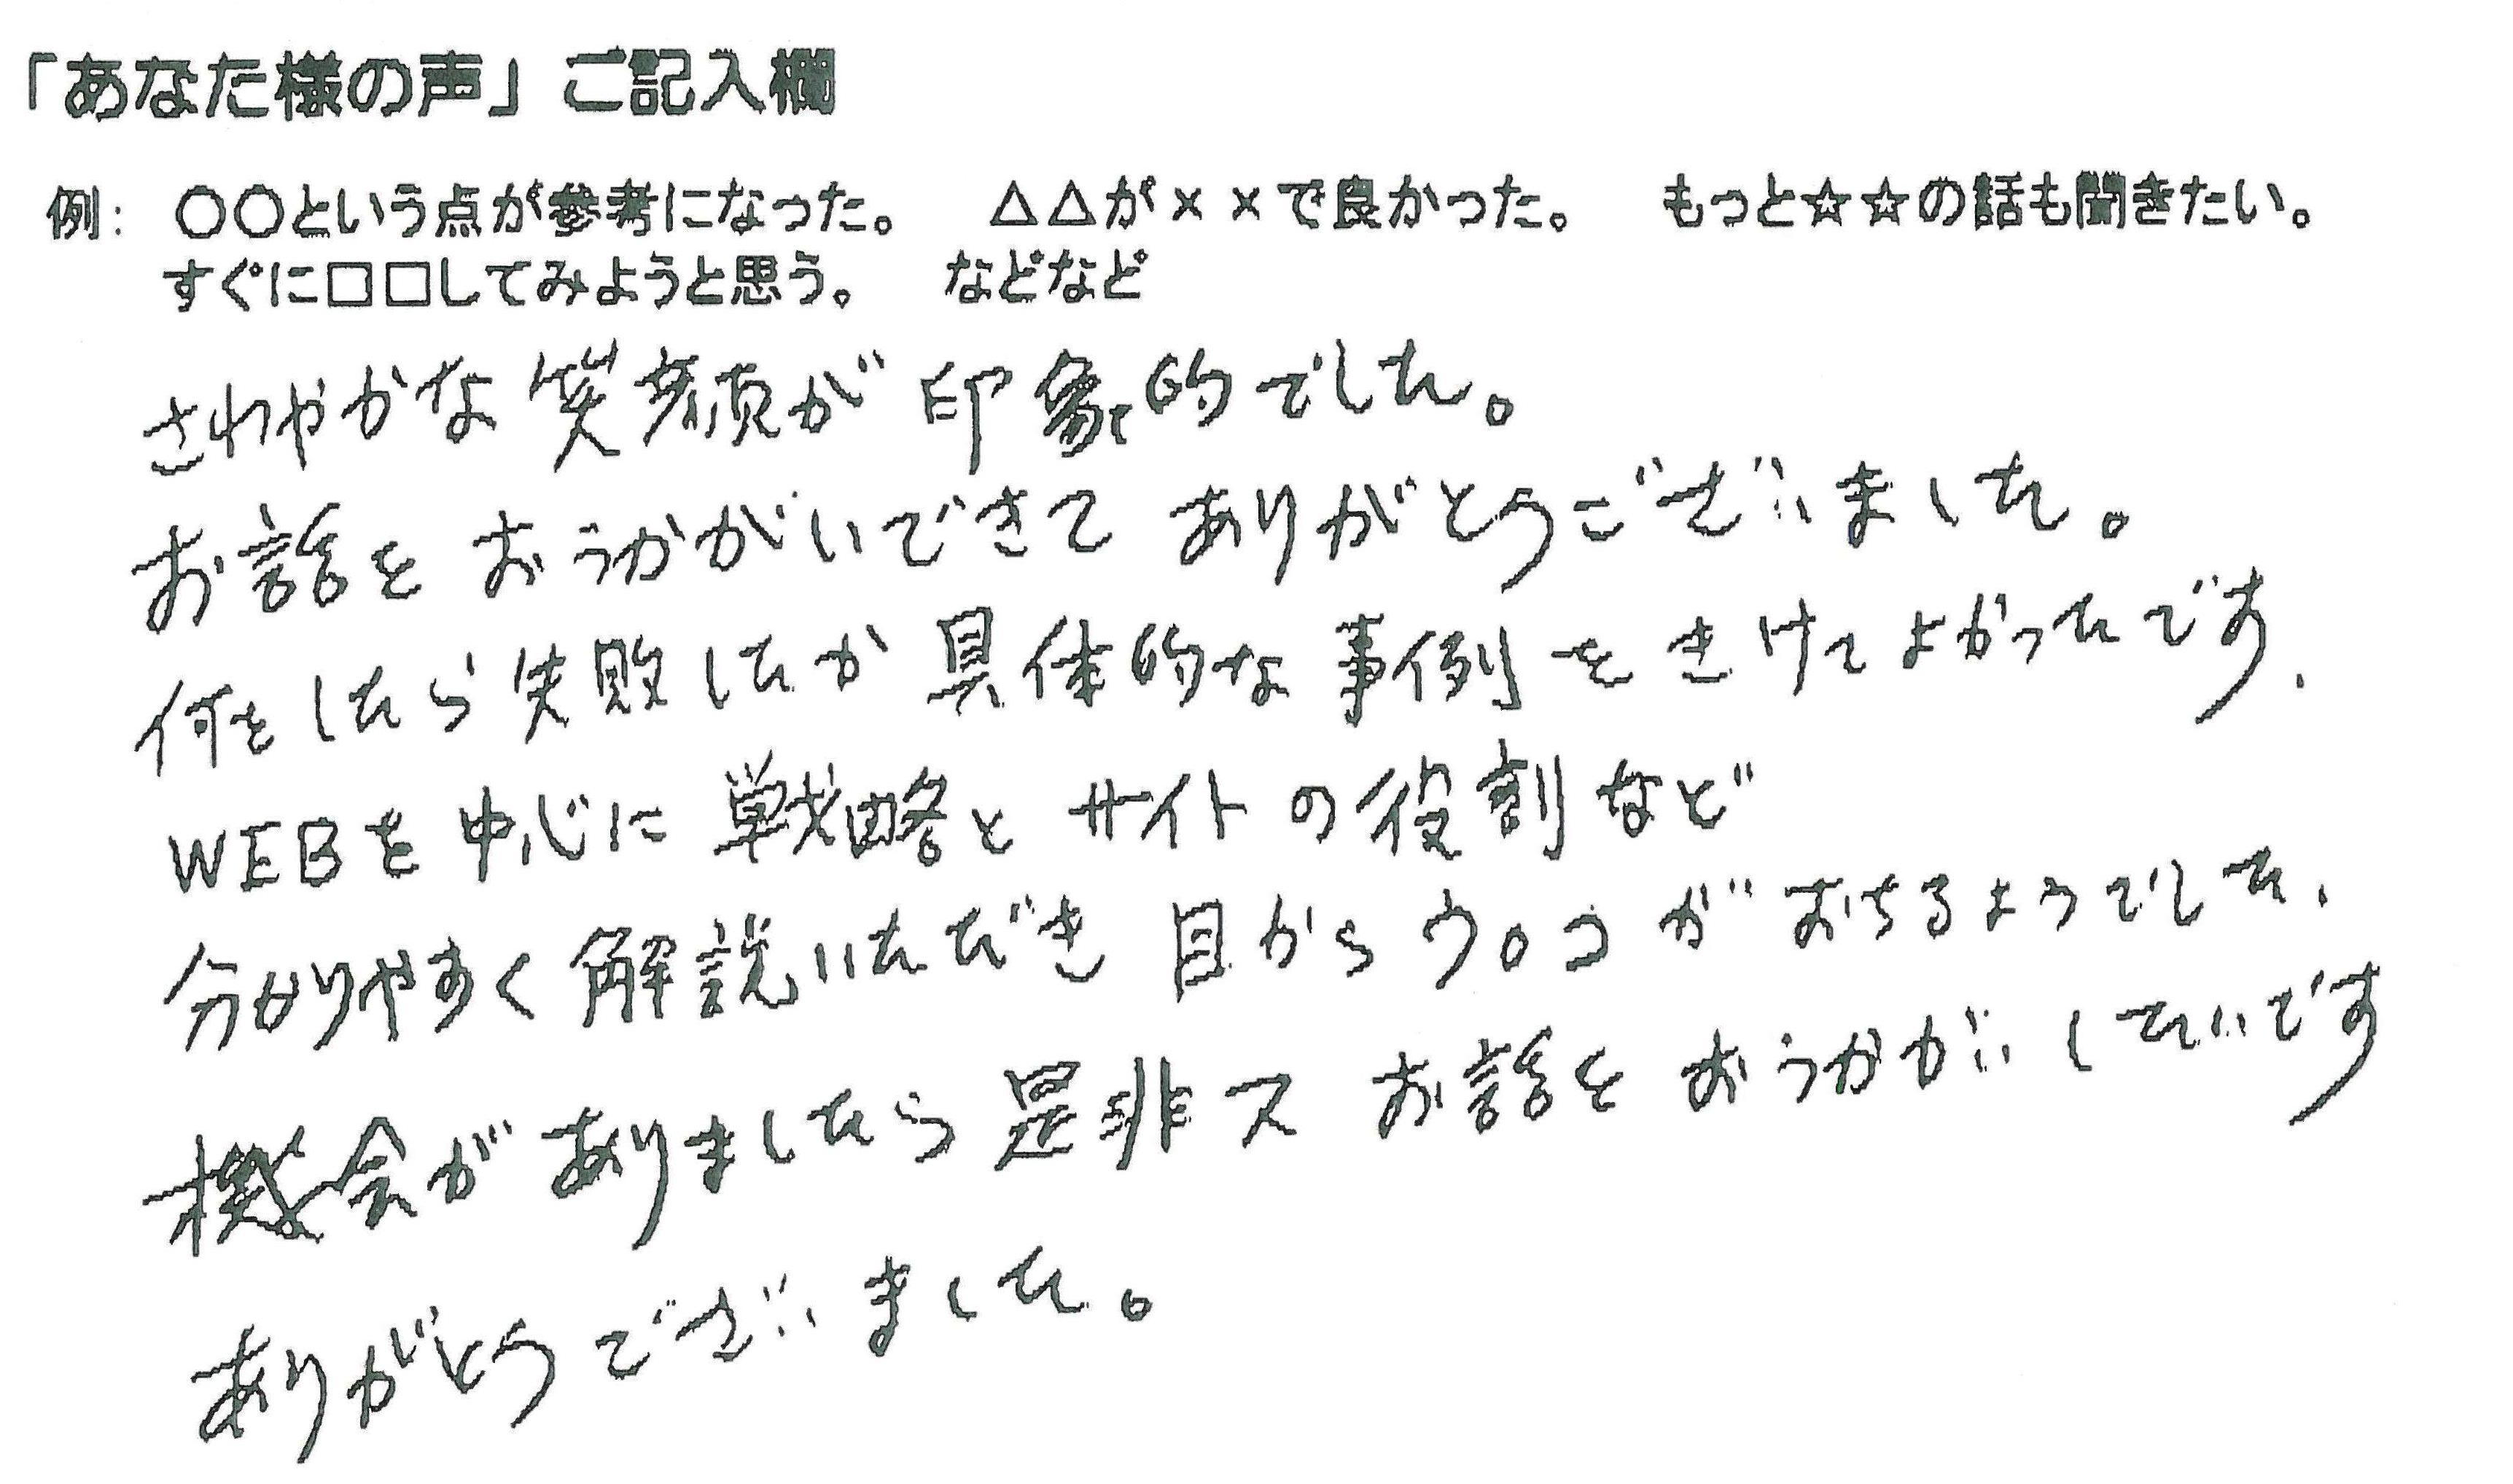 「あなた様の声」ご記入欄
例： 〇〇という点が参考になった。 △△が××で良かった。 もっと☆☆の話も聞きたい。
すぐに□□してみようと思う。 などなど
さわやかな笑顔が印象的でした。
お話をおうかがいできてありがとうございました。
何をしたら失敗したか具体的な事例をきけてよかったです.
WEBを中心に戦略とサイトの役割など
分かりやすく解説いただき目からウロコがおちるようでした.
機会がありましたら是非又お話をおうかがいしたいです
ありがとうございました。